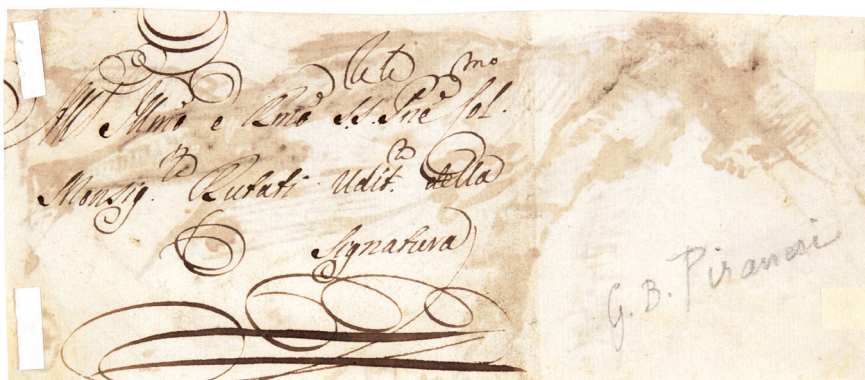 All' Illmo e Rmo S.S. Pne Col.mo
Monsig.re Rufati Udit.re della
Signatura
G. B. Piranesi